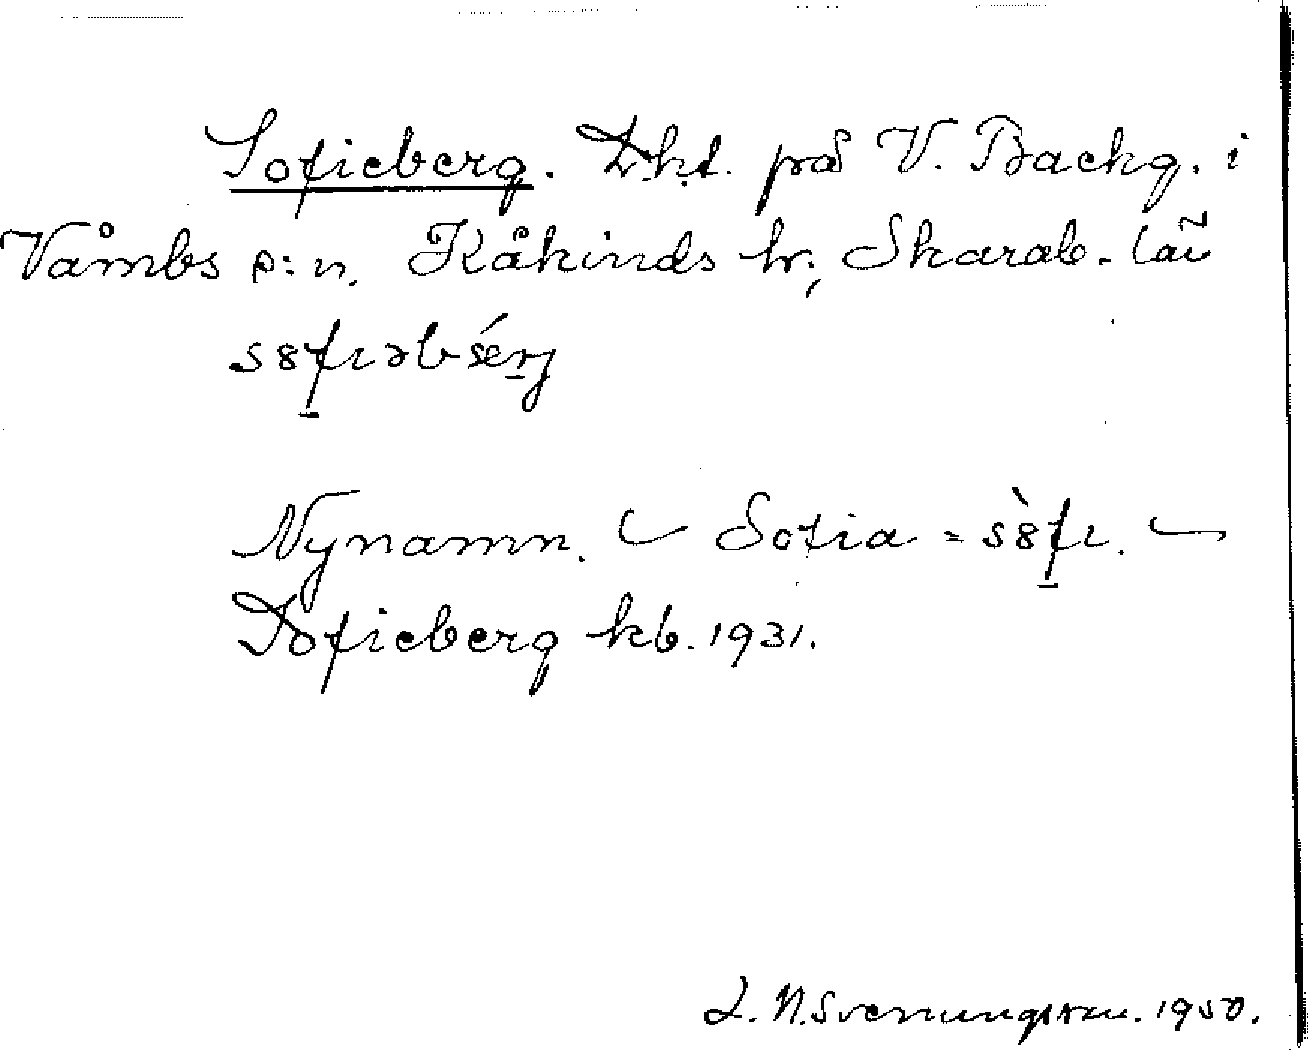 Sofieberg. Lht. på V. Backg. i
Våmbs s:n. Kåkinds hr., Skarab. län
s8fıəbærj
Nynamn. Sofia = s8̀fı.
Sofieberg kb. 1931.
L. N. Svenungsson. 1950.